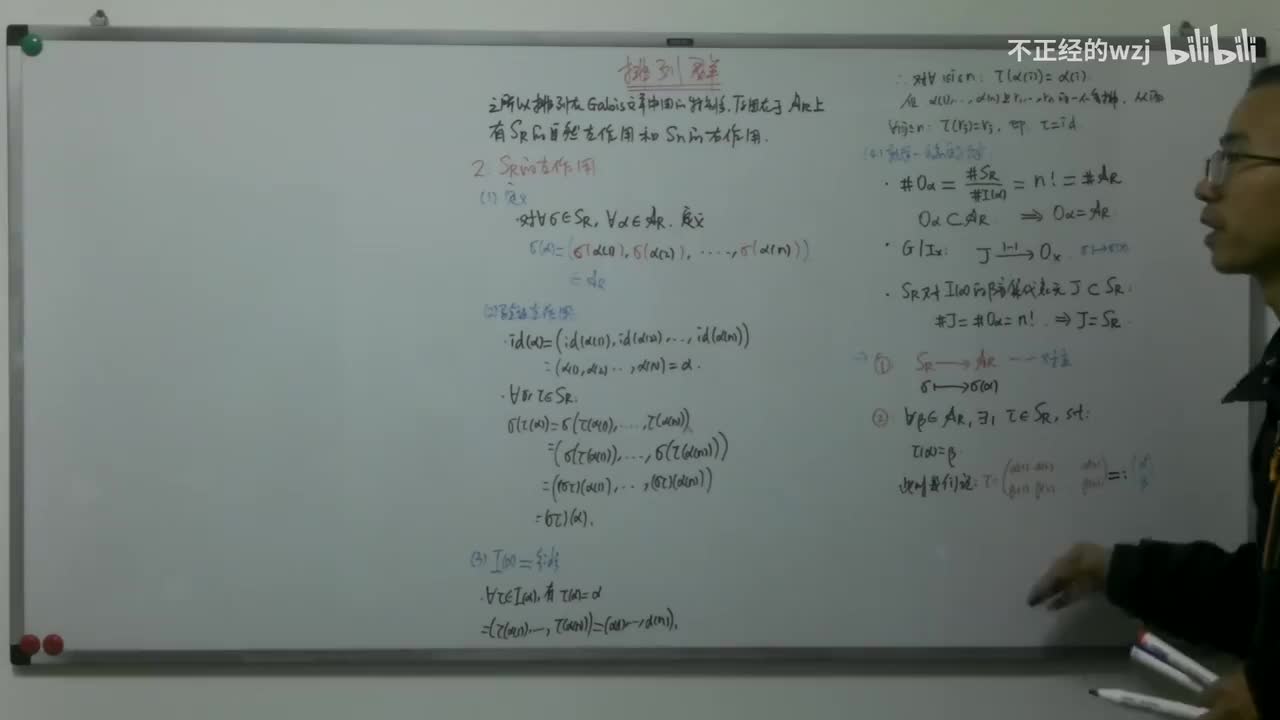 不正经的wzj bilibili
排列群
之所以排列在Galois文章中困以特别法,原因在于 A_R上
有S_R的自然左作用和Sn的右作用.
2. S_R的左作用
(1) 定义
·对∀σ∈S_R, ∀α∈A_R, 定义
σ(α)=(σ(α(1)), σ(α(2)), ....., σ(α(n)))
∈A_R
(2) 验证左作用
·id(α)=(id(α(1)), id(α(2)), ..., id(α(n)))
=(α(1), α(2) ..., α(n))=α.
·∀σ, τ∈S_R,
σ(τ(α))=σ(τ(α(1)), ..., τ(α(n)))
=(σ(τ(α(1))), ..., σ(τ(α(n))))
=((στ)(α(1)), ..., (στ)(α(n)))
=(στ)(α).
(3) I(α)={id}
·∀τ∈I(α), 有 τ(α)=α
=(τ(α(1)), ..., τ(α(n)))=(α(1), ..., α(n)),
∴ 对∀ 1≤i≤n: τ(α(i))=α(i)
但 α(1), ..., α(n)是r1, ..., rn的一个重排, 从而
∀1≤j≤n: τ(rj)=rj, 即 τ=id.
· #Oα = #S_R / #I(α) = n! = #A_R
Oα⊂A_R ⇒ Oα=A_R
· G/Ix: J 1-1→ Ox σ↦σ(x)
· S_R对I(α)的陪集代表元 J⊂S_R:
#J=#Oα=n! ⇒ J=S_R.
⇒ ① S_R → A_R 一一对应
σ↦σ(α)
② ∀β∈A_R, ∃1 τ∈S_R, st:
τ(α)=β.
此时我们记: τ=(α(1) α(2) ... α(n) β(1) β(2) ... β(n))=:(α β)